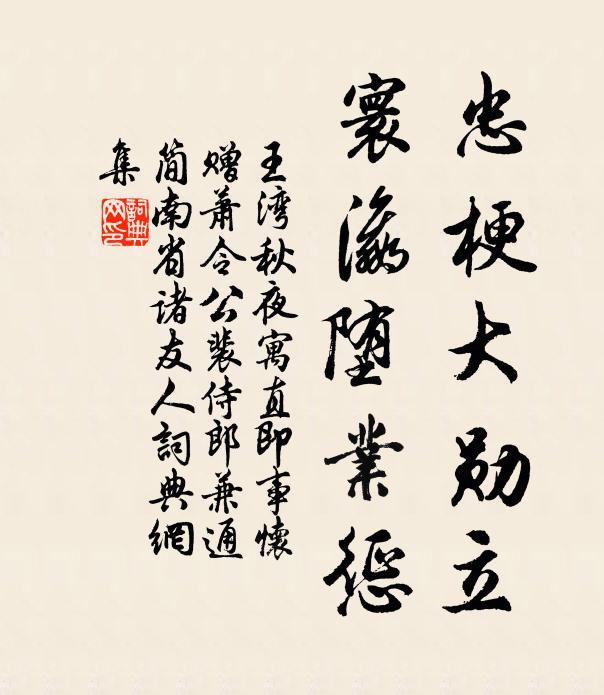 忠梗大勋立
寰瀛堕業惩
王湾秋夜寓直即事懷
赠萧令公裴侍郎兼通
简南省诸友人詞典網
集
詞典
网印